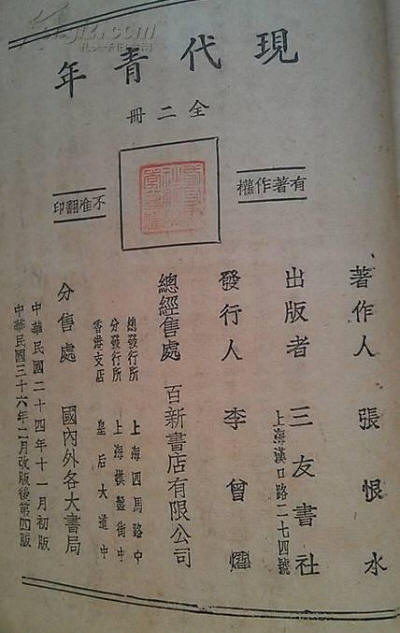 現代青年
全二冊
有著作權
不准翻印
著作人 張恨水
出版者 三友書社
上海漢口路二七四號
發行人 李曾燿
總經售處 百新書店有限公司
總發行所 上海四馬路中
分發行所 上海棋盤街中
香港支店 皇后大道中
分售處 國內外各大書局
中華民國二十四年十一月初版
中華民國三十六年二月改版後第四版